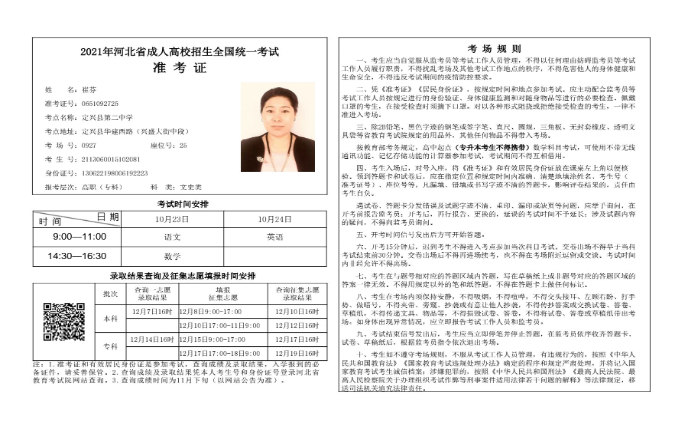 2021年河北省成人高校招生全国统一考试
准 考 证
姓 名：崔芬
准考证号：0651092725
考点名称：定兴县第二中学
考点地址：定兴县华建西路（兴盛大街中段）
考 场 号：0927 座位号：25
考 生 号：2113060015102081
身份证号：130622198006192223
报考层次：高职（专科） 科 类：文史类
考试时间安排
时 间 日 期 10月23日 10月24日
9:00—11:00 语文 英语
14:30—16:30 数学
录取结果查询及征集志愿填报时间安排
批次 查询一志愿录取结果 填报征集志愿 查询征集志愿录取结果
本科 12月7日16时 12月8日9:00-17:00 12月10日16时
12月10日17:00-11日9:00 12月12日16时
专科 12月14日16时 12月15日9:00-17:00 12月17日16时
12月17日17:00-18日9:00 12月19日16时
注：1.准考证和有效居民身份证是参加考试、查询成绩及录取结果、入学报到的必
备证件，请妥善保管。2.查询成绩及录取结果凭本人考生号和身份证号登录河北省
教育考试院网站查询。3.查询成绩时间为11月下旬（以网站公告为准）。
考 场 规 则
一、考生应当自觉服从监考员等考试工作人员管理，不得以任何理由妨碍监考员等考
试工作人员履行职责，不得扰乱考场及其他考试工作地点的秩序，不得危害他人的身体健康和
生命安全，不得违反考试期间的疫情防控要求。
二、凭《准考证》《居民身份证》，按规定时间和地点参加考试。应主动配合监考员等
考试工作人员按规定进行的身份验证、身体健康监测和对随身物品等进行的必要检查，佩戴
口罩的考生，在接受检查时须摘下口罩。对以各种形式阻挠或拒绝接受检查的考生，一律不
准进入考场。
三、除2B铅笔、黑色字迹的钢笔或签字笔、直尺、圆规、三角板、无封套橡皮、透明文
具袋等省教育考试院规定的用品外，其他任何物品不得带入考场。
按教育部考务规定，高中起点（专升本考生不得携带）数学科目考试，可使用不带无线
通讯功能、记忆存储功能的计算器参加考试，考试期间不得互相借用。
四、考生入场后，对号入座，将《准考证》和有效居民身份证放在课桌左上角以便核
验。领到答题卡和试卷后，应在指定位置和规定时间内准确、清楚地填涂姓名、考生号（
准考证号）、座位号等。凡漏填、错填或书写字迹不清的答题卡，影响评卷结果的，责任由
考生自负。
遇试卷、答题卡分发错误及试题字迹不清、重印、漏印或缺页等问题，应举手询问，在
开考前报告监考员；开考后，再行报告、更换的，延误的考试时间不予延长；涉及试题内容的
疑问，不得向监考员询问。
五、开考时间信号发出后方可开始答题。
六、开考15分钟后，迟到考生不得进入考点参加当次科目考试。交卷出场不得早于当科
考试结束前30分钟，交卷出场后不得再进场续考，也不得在考场附近逗留或交谈。考试时间
内一律不允许不得离场。
七、考生在与题号相对应的答题区域内答题，写在草稿纸上或非题号对应的答题区域的
答案一律无效。不得用规定以外的笔和纸答题，不得在答题卡上做任何标记。
八、考生在考场内须保持安静，不得吸烟，不得喧哗，不得交头接耳、左顾右盼、打手
势、做暗号，不得夹带、旁窥、抄袭或有意让他人抄袭，不得代他人抄答案或交换试卷、答卷、
草稿纸，不得传递文具、物品等，不得损毁试卷、答卷，不得将试卷、答卷或草稿纸带出考
场。如身体出现异常情况，应立即报告考试工作人员和监考员。
九、考试结束信号发出后，考生应当立即停笔并停止答题，在监考员依序收齐答题卡、
试卷、草稿纸后，根据监考员指令依次退出考场。
十、考生如不遵守考场规则，不服从考试工作人员管理，有违规行为的，按照《中华人
民共和国教育法》《国家教育考试违规处理办法》确定的程序和规定严肃处理，并将记入国
家教育考试考生诚信档案；涉嫌犯罪的，按照《中华人民共和国刑法》《最高人民法院、最
高人民检察院关于办理组织考试作弊等刑事案件适用法律若干问题的解释》等法律规定，移
送司法机关追究法律责任。